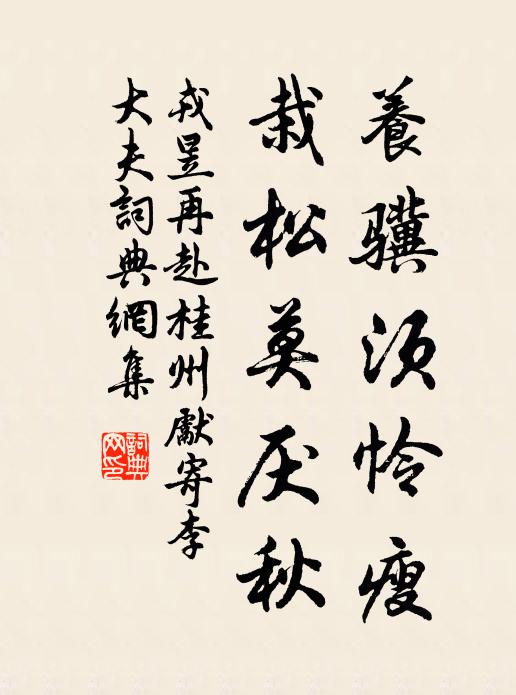 養驥须怜瘦
栽松莫厌秋
戎昱再赴桂州獻寄李
大夫詞典網集
詞典
网印